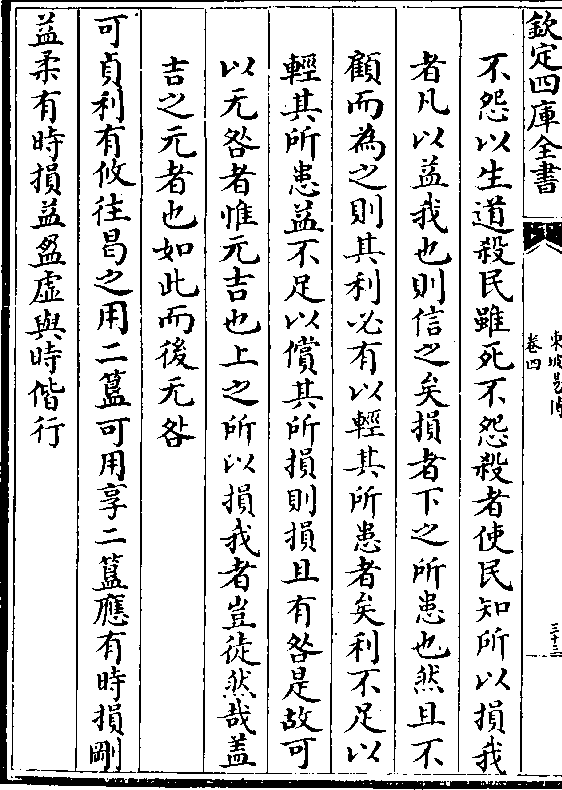 欽定四庫全書
東坡易傳
卷四
三十三
不怨以生道殺民雖死不怨殺者使民知所以損我
者凡以益我也則信之矣損者下之所患也然且不
顧而為之則其利必有以輕其所患者矣利不足以
輕其所患益不足以償其所損則損且有咎是故可
以无咎者惟元吉也上之所以損我者豈徒然哉蓋
吉之元者也如此而後无咎
可貞利有攸往曷之用二簋可用享二簋應有時損剛
益柔有時損益盈虛與時偕行